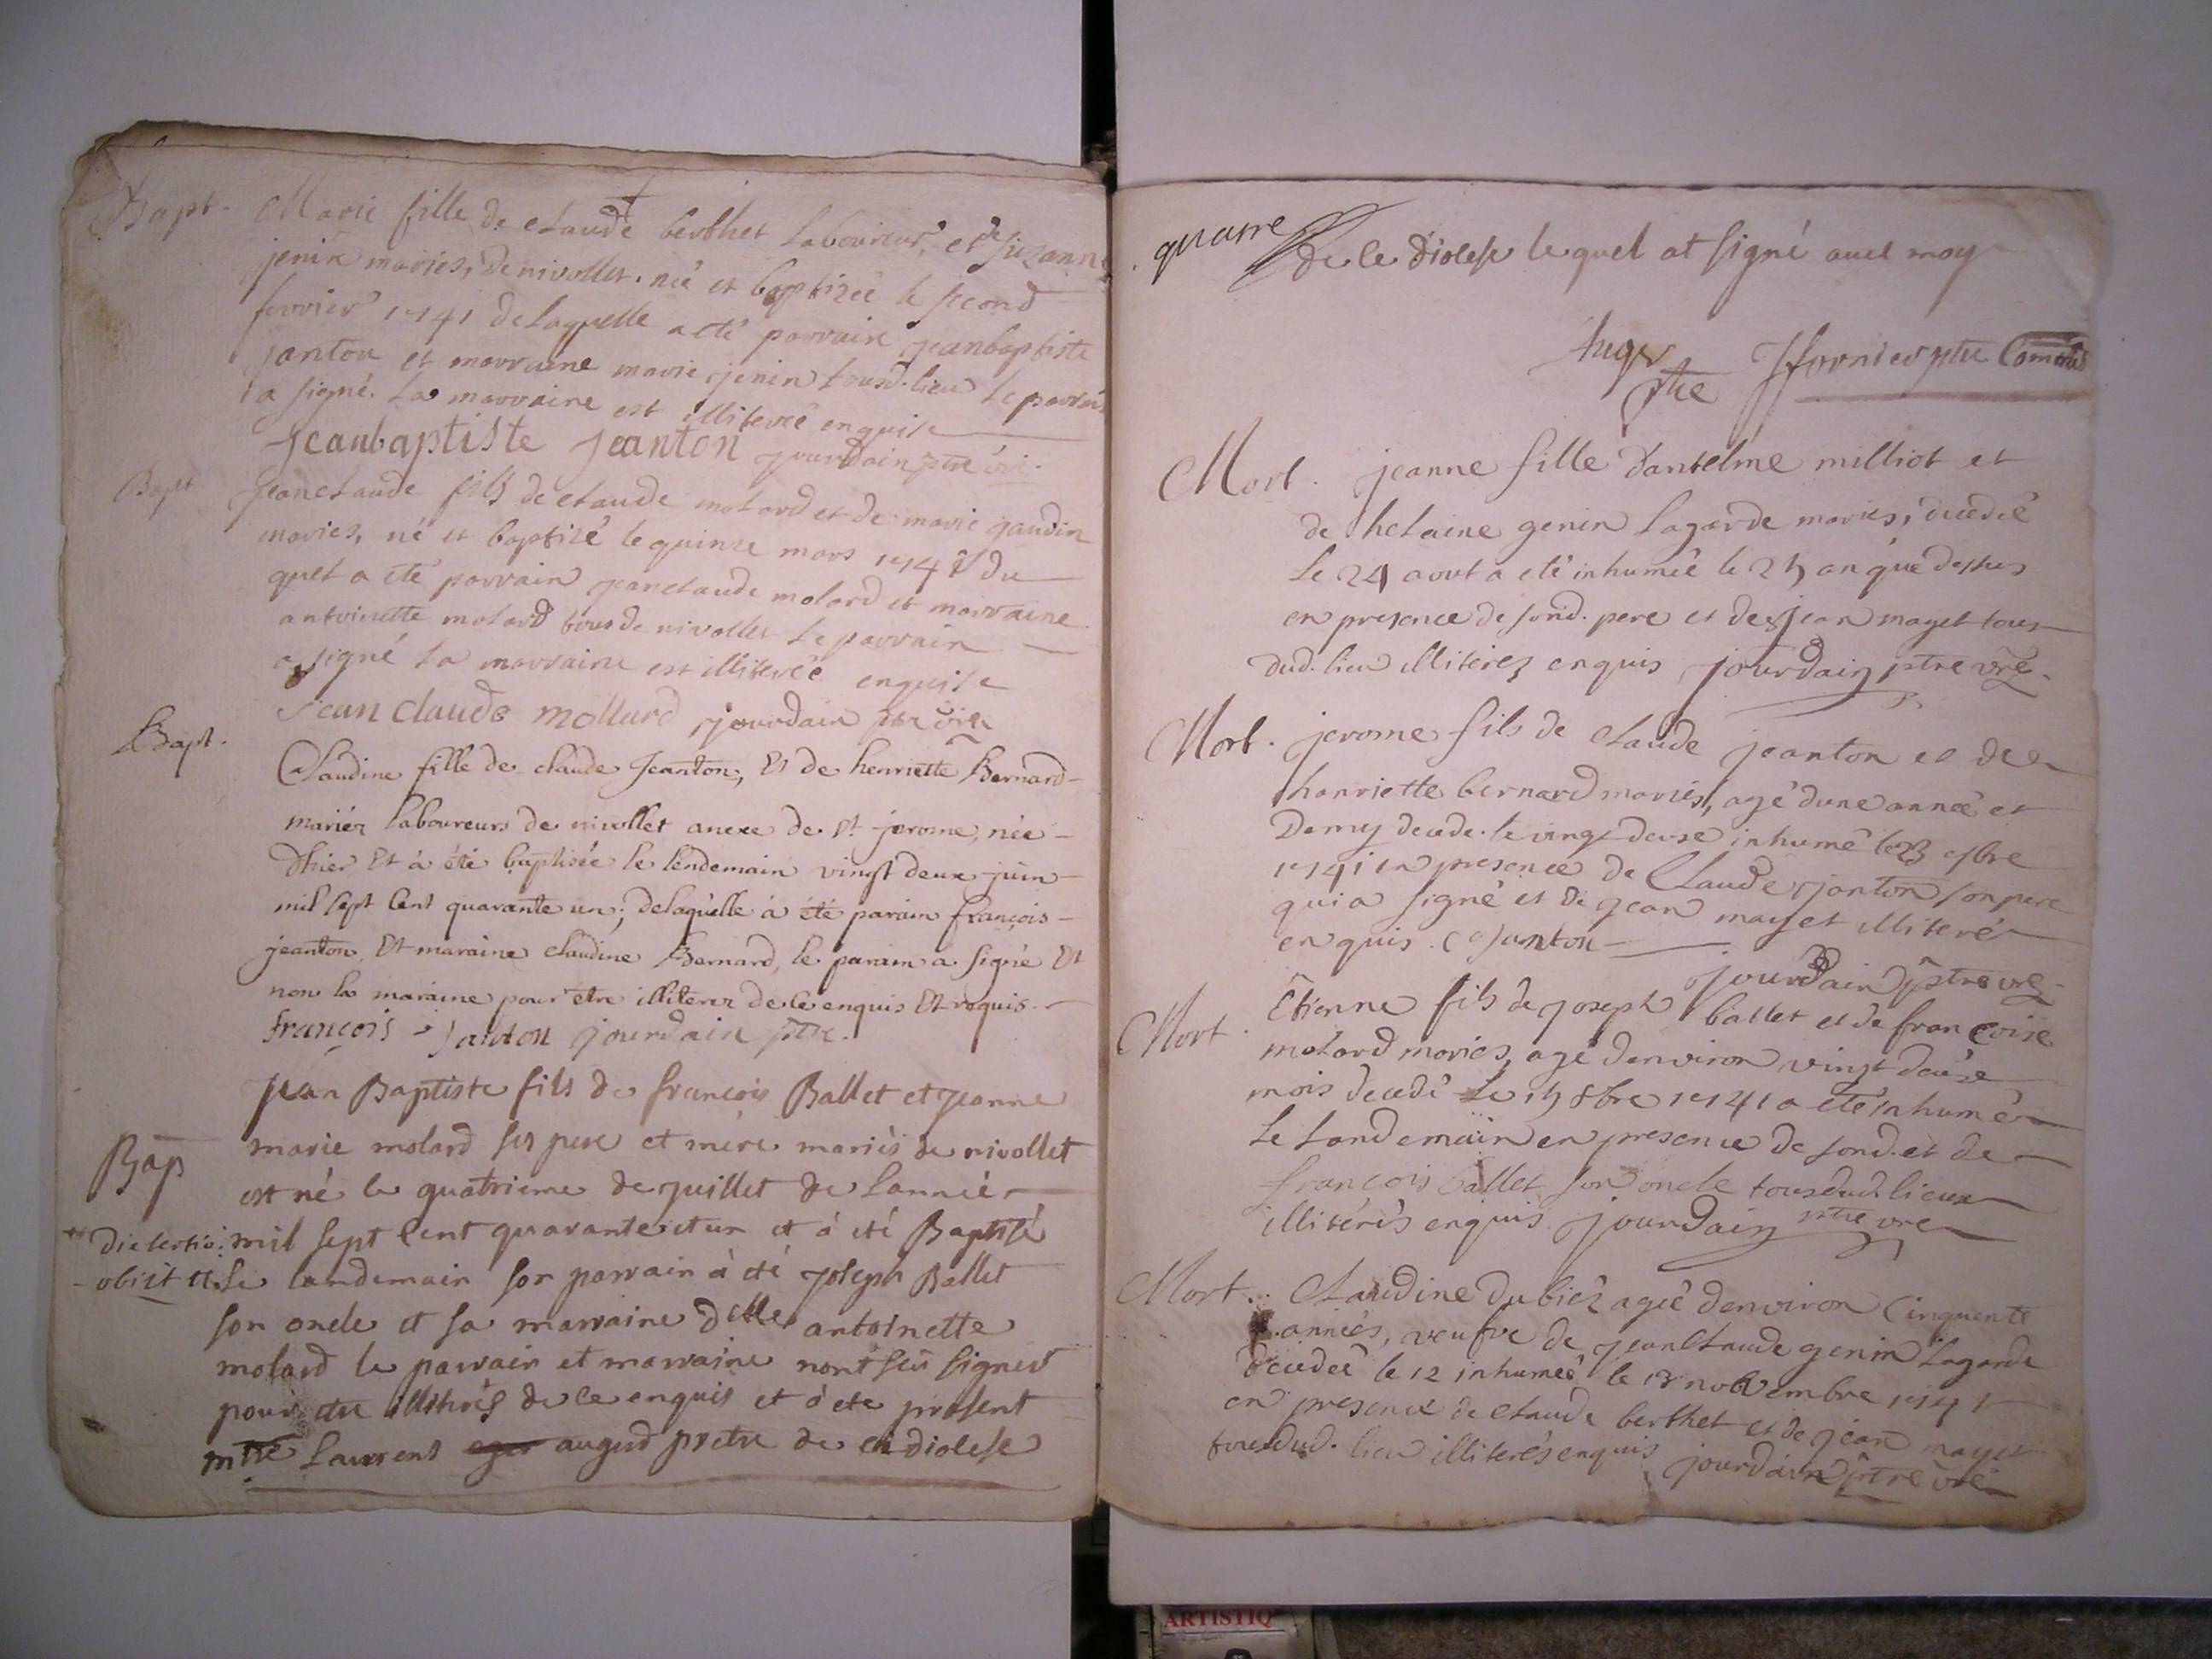 Bapt. Marie fille de claude berthet laboureur, et de suzanne
jenin mariés, de nivollet. née et baptizée le second
fevrier 1741 de laquelle a eté parrain jeanbaptiste
janton et marraine marie jenin tousd. lieu le parrain
a signé. la marraine est illiterée enquise
jeanbaptiste jeanton jourdain ptre
Bapt jeanclaude fils de claude molard et de marie gaudin
maries, né et baptizé le quinze mars 1741 du
quel a eté parrain jeanclaude molard et marraine
antoinette molard tous de nivollet le parrain
a signé la marraine est illiterée enquise
jean claude mollard jourdain ptre vre
Bapt. Claudine fille de claude Jeanton, Et de henriette Bernard
mariéz laboureurs de nivollet anexe de St. jerome, née
dhier Et à été baptisée le lendemain vingt deux juin
mil sept Cent quarante un; delaquelle à été parain françois
jeanton, Et maraine claudine Bernard, le parain a signé Et
non la maraine pour être illiterez de ce enquis Et requis.
françois janton jourdain ptre.
jean Baptiste fils de françois Ballet et jeanne
marie molard ses pere et mére mariés de nivollet
Bap est né le quatrieme de juillet de lannéé
mil sept Cent quarante et un et à eté Baptisé
die tertio
obiit le landemain son parrain à eté joseph Ballet
son oncle et sa marraine dlle antoinette
molard le parrain et marraine nont seu signer
pour etre illitrés de ce enquis et à ete present
mtre Laurens auger pretre de ce diolese
quatre
de ce diolese lequel at signé avec moy
Auger
ptre jfornier ptre Comdis
Mort. jeanne fille dantelme milliot et
de helaine genin lagarde mariés, décedée
le 24 aout a eté inhumée le 25 an que dessus
en presence de sond. pere et de jean mayet tous
dud. lieu illiterez enquis jourdain ptre vre.
Mort. jerome fils de claude jeanton et de
hanriette bernard mariés, agé dune année et
Demy decede. le vingt deux inhumé le 23 7bre
1741 en presence de Claude janton son pere
qui a signé et de jean mayet illiteré
enquis. C janton
jourdain ptre vre
Mort. Êtienne fils de joseph ballet et de françoise
molard mariés, agé denviron vingt deux
mois decedé le 15 8bre 1741 a eté inhumé
le landemain en presence de sond. et de
françois ballet son oncle tousdud. lieu
illitérés enquis. jourdain ptre vre
Mort. Claudine dubiez agée denviron Cinquente
années, veufve de jeanclaude genin lagarde
décedeé le 12 inhumeé le 13 novembre 1741
en presence de claude berthet et de jean mayet
tousdud. lieu illiterés enquis jourdain ptre vre
ARTISTIQ